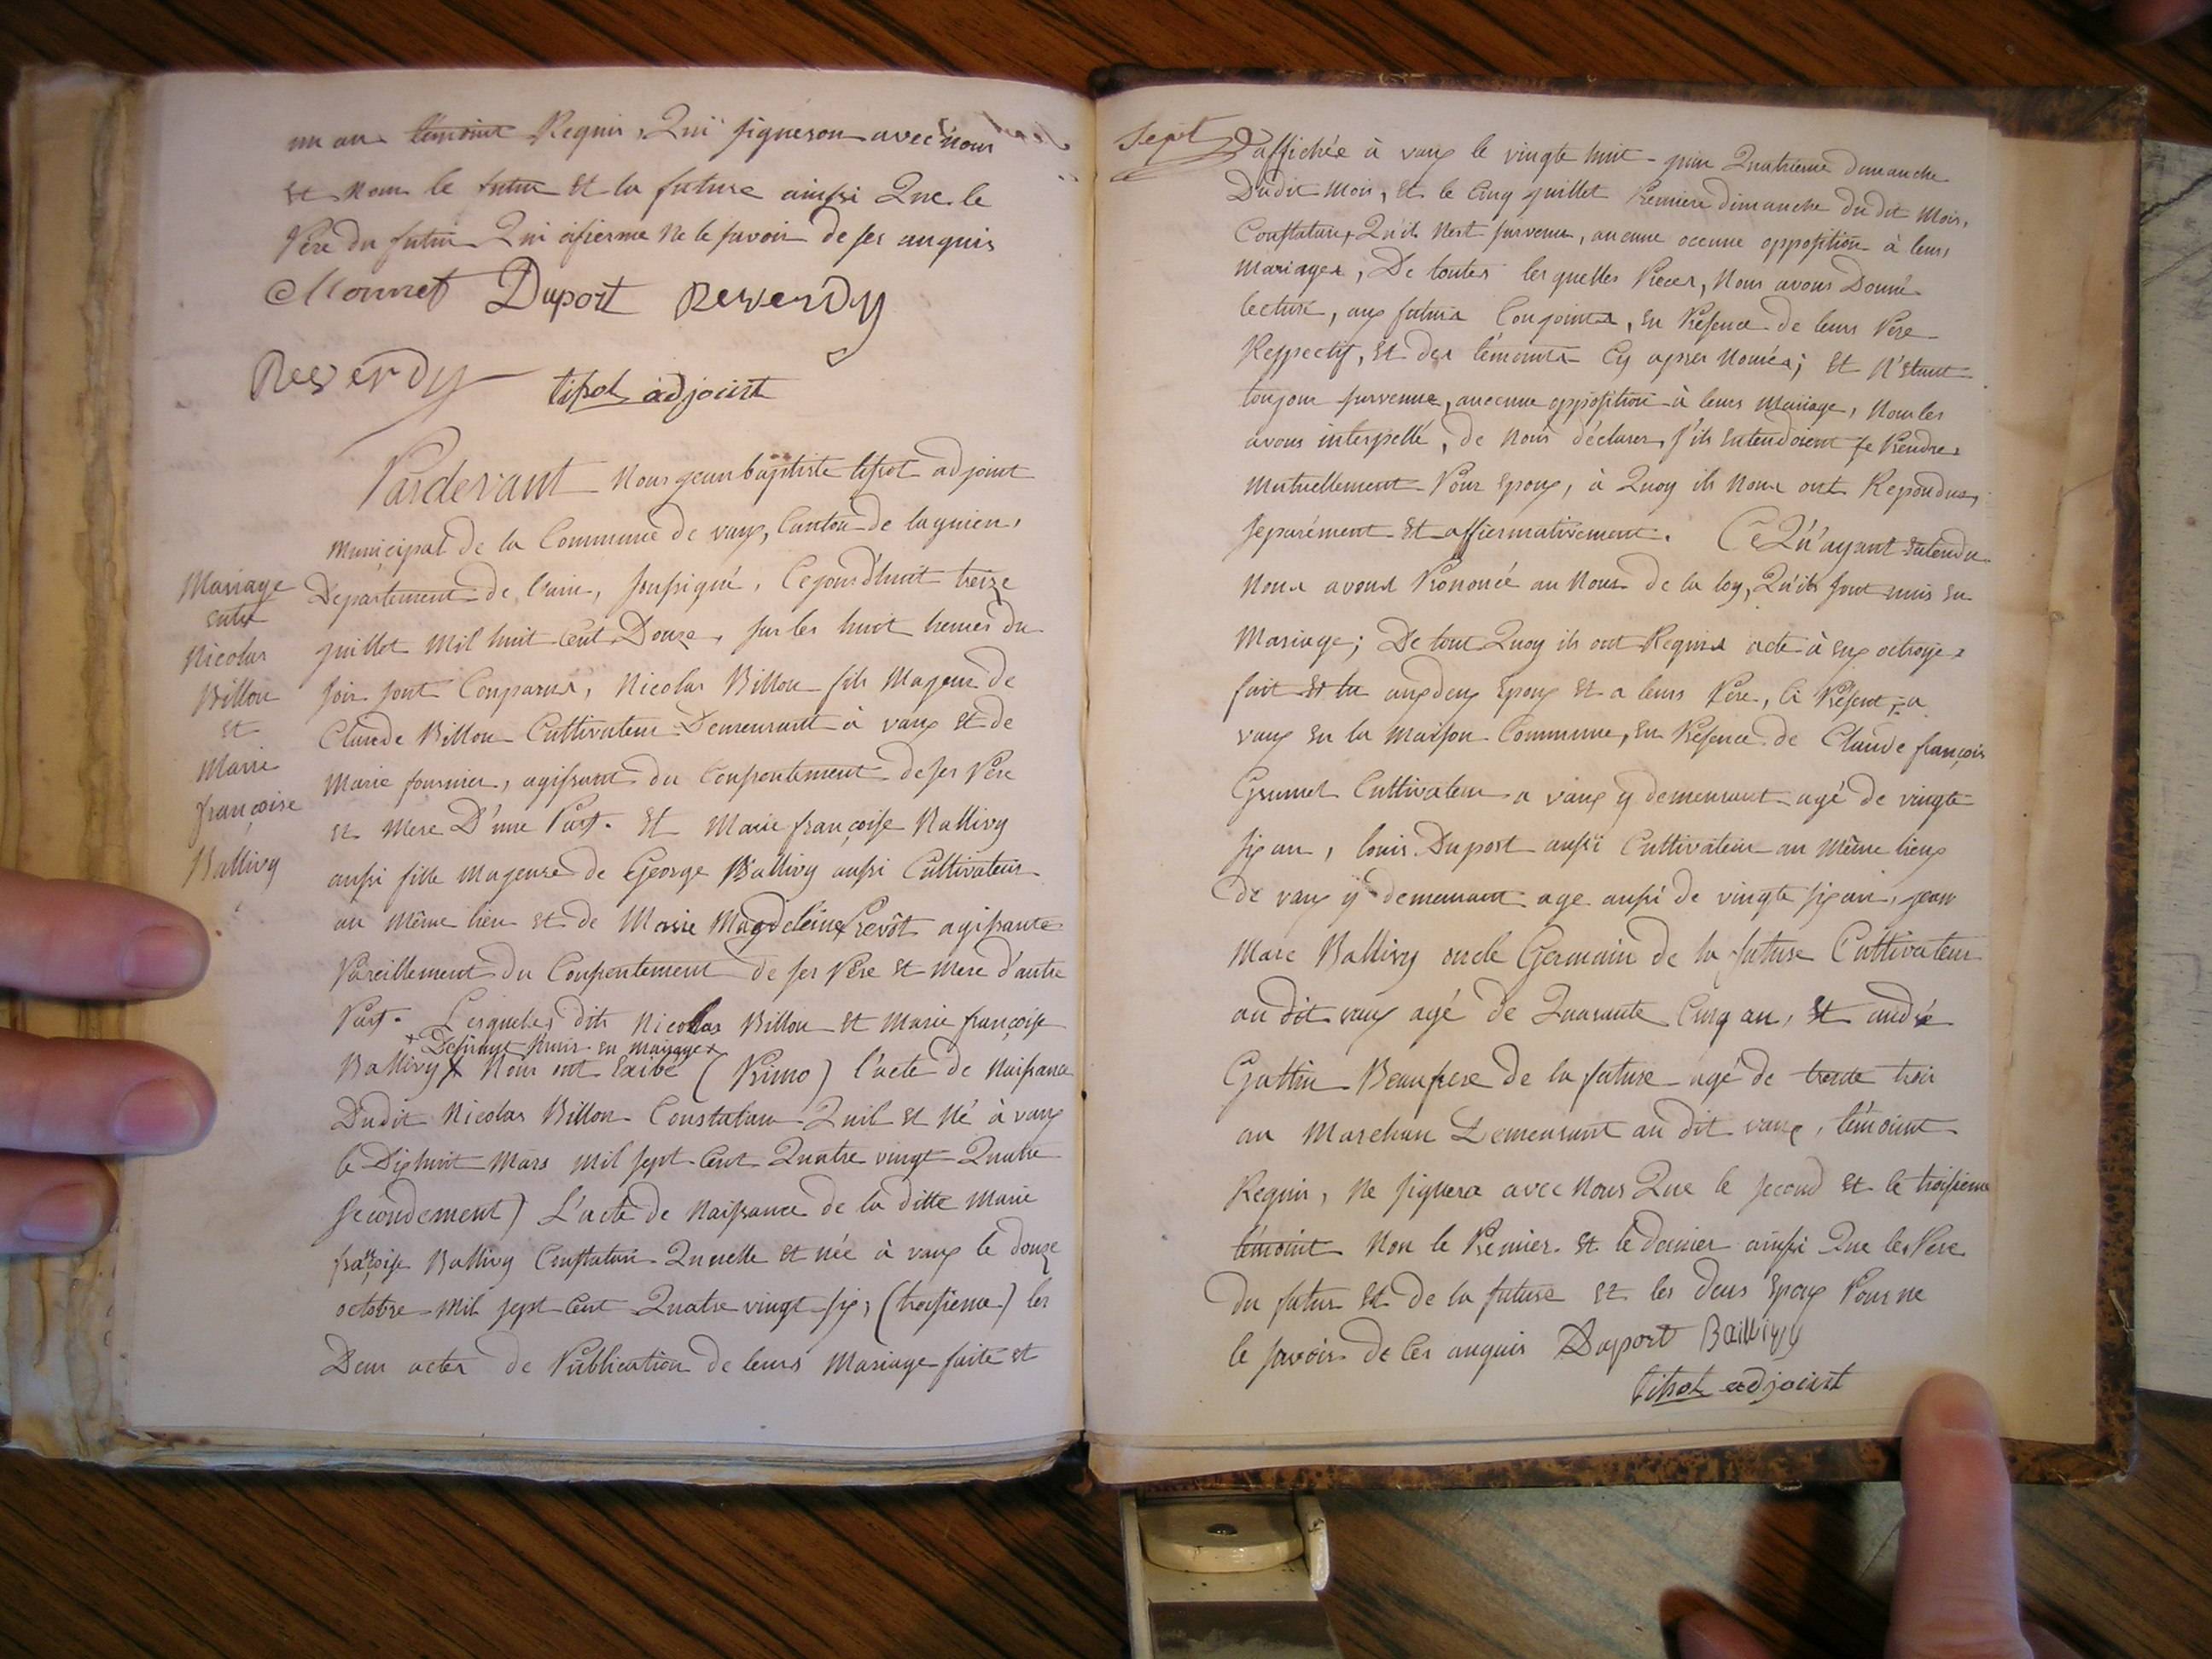 un an témoint Requis, Qui signeron avec nous
Et non le futur Et la future ainssi Que le
Père du futur Qui afierme Ne le savoir de ses anquis
Monnet Duport Reverdy
Reverdy tissot adjoint
Pardevant Nous jean baptiste tissot adjoint
municipal de la Commune de vaux, Canton de lagnieu,
Departement de l'ain, soussigné, Cejourdhuit treize
juillet mil huit Cent Douze, sur les huit heures du
soir sont Comparus, Nicolas Billon fils Majeur de
Claude Billon Cultivateur Demeurant à vaux Et de
Marie fournier, agissant du Conssentement de ses Père
Et Mere D'une Part. Et Marie françoise Ballivy
aussi fille majeure de George Ballivy aussi Cultivateur
au Même lieu Et de Marie Magdeleine Prevôt agissante
Pareillement du Conssentement de ses Père Et Mere d'autre
Part. Lesqueles dits Nicolas Billon Et Marie françoise
+ Desirant s'unir en mariage +
Ballivy x Nous ont Exibé (Primo) l'acte de Naissance
Dudit Nicolas Billon Constatant Quil Et Né à vaux
le Dixhuit Mars mil sept Cent Quatre vingt Quatre
secondement) L'acte de Naissance de la ditte Marie
françoise Ballivy Constatan Quuelle Et née à vaux le douze
octobre mil sept Cent Quatre vingt six, (troisieme) les
Deux actes de Publication de leurs Mariage faite Et
Mariage
entre
Nicolas
Billon
Et
Marie
françoise
Ballivy
Sept
affichée à vaux le vingte huit juin Quatrieme dimanche
Dudit Mois, Et le Cinq juillet Premiere dimanche du dit Mois,
Constatant, Qu'il N'est survenu, aucune ocunne opposition à leurs
Mariages, De toutes les quelles Pieces, Nous avons Donné
lecture, aux futurs Conjoints, En Présence de leurs Père
Respectif, Et des témoints Cy apres Només; Et N'étant
toujour survenue, aucunne opposition à leurs Mariage, Nous les
avons interpellé, de Nous déclarer, s'ils Entendoient se Prendre
mutuellement Pour Epoux, à Quoy ils Nous ont Repondus,
separément Et affiermativement. Ce Qu'ayant Entendu
Nous avons Prononcé au Nom de la loy, Qu'ils sont unis En
Mariage; De tout Quoy ils ont Requis acte à Eux octroyé
fait Et lu aux deux Epoux Et a leurs Père, Ci Présent, a
vaux En la Maison Commune, En Présence de Claude françois
Grumet Cultivateur a vaux y demeurant agé de vingte
six an, louis Duport aussi Cultivateur au Même lieux
de vaux y demeurant age aussi de vingte six an, jean
Marc Ballivy oncle Germain de la future Cultivateur
au dit vaux agé de Quarante Cinq an, Et andré
Gattin Beaufrere de la future agé de trente trois
an Marchan Demeurant au dit vaux, témoint
Requis, Ne signera avec Nous Que le second Et le troisieme
témoint Non le Premier Et le dernier ainssi Que les Père
du futur Et de la future Et les deus Epoux Pour ne
le savoir de Ces anquis Duport Baillivy
tissot adjoint